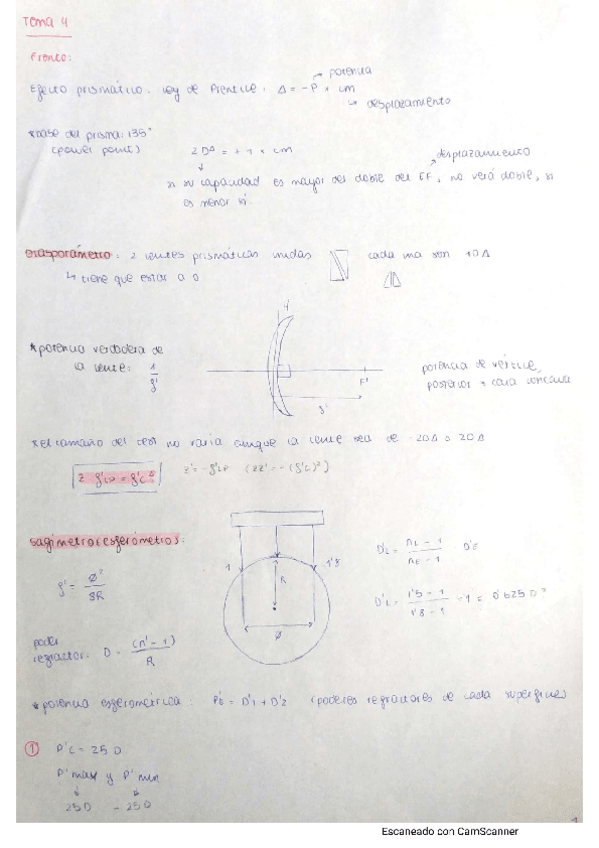 Tema 4
Fronto:
potencia
Efecto prismático: Ley de Prentice: Δ = -P × cm
↳ desplazamiento
*base del prisma: 135°
(power point)
2DΔ = + 1 × cm
desplazamiento
si su capacidad es mayor del doble del EF, no verá doble, si
es menor sí.
2 lentes prismáticas unidas
cada una son 10Δ
↳ tiene que estar a 0
*potencia verdadera de
la lente: 1/f'
H
F'
f'
potencia de vértice
posterior → cara cóncava
*el tamaño del test no varía aunque la lente sea de -20Δ o 20Δ
Z'= -f'
1
1'8
R
Ø
f' = Ø²/8R
D'L = nL - 1 / nE - 1 D'E
D'L = 1'5 - 1 / 1'8 - 1 · 1 = 0'625 D
poder
refractor: D = (n' - 1)/R
*potencia esferométrica: P'E = D'1 + D'2 (poderes refractores de cada superficie)
① P'L = 25 D
P'max y P'min
25D -25D
1
Escaneado con CamScanner